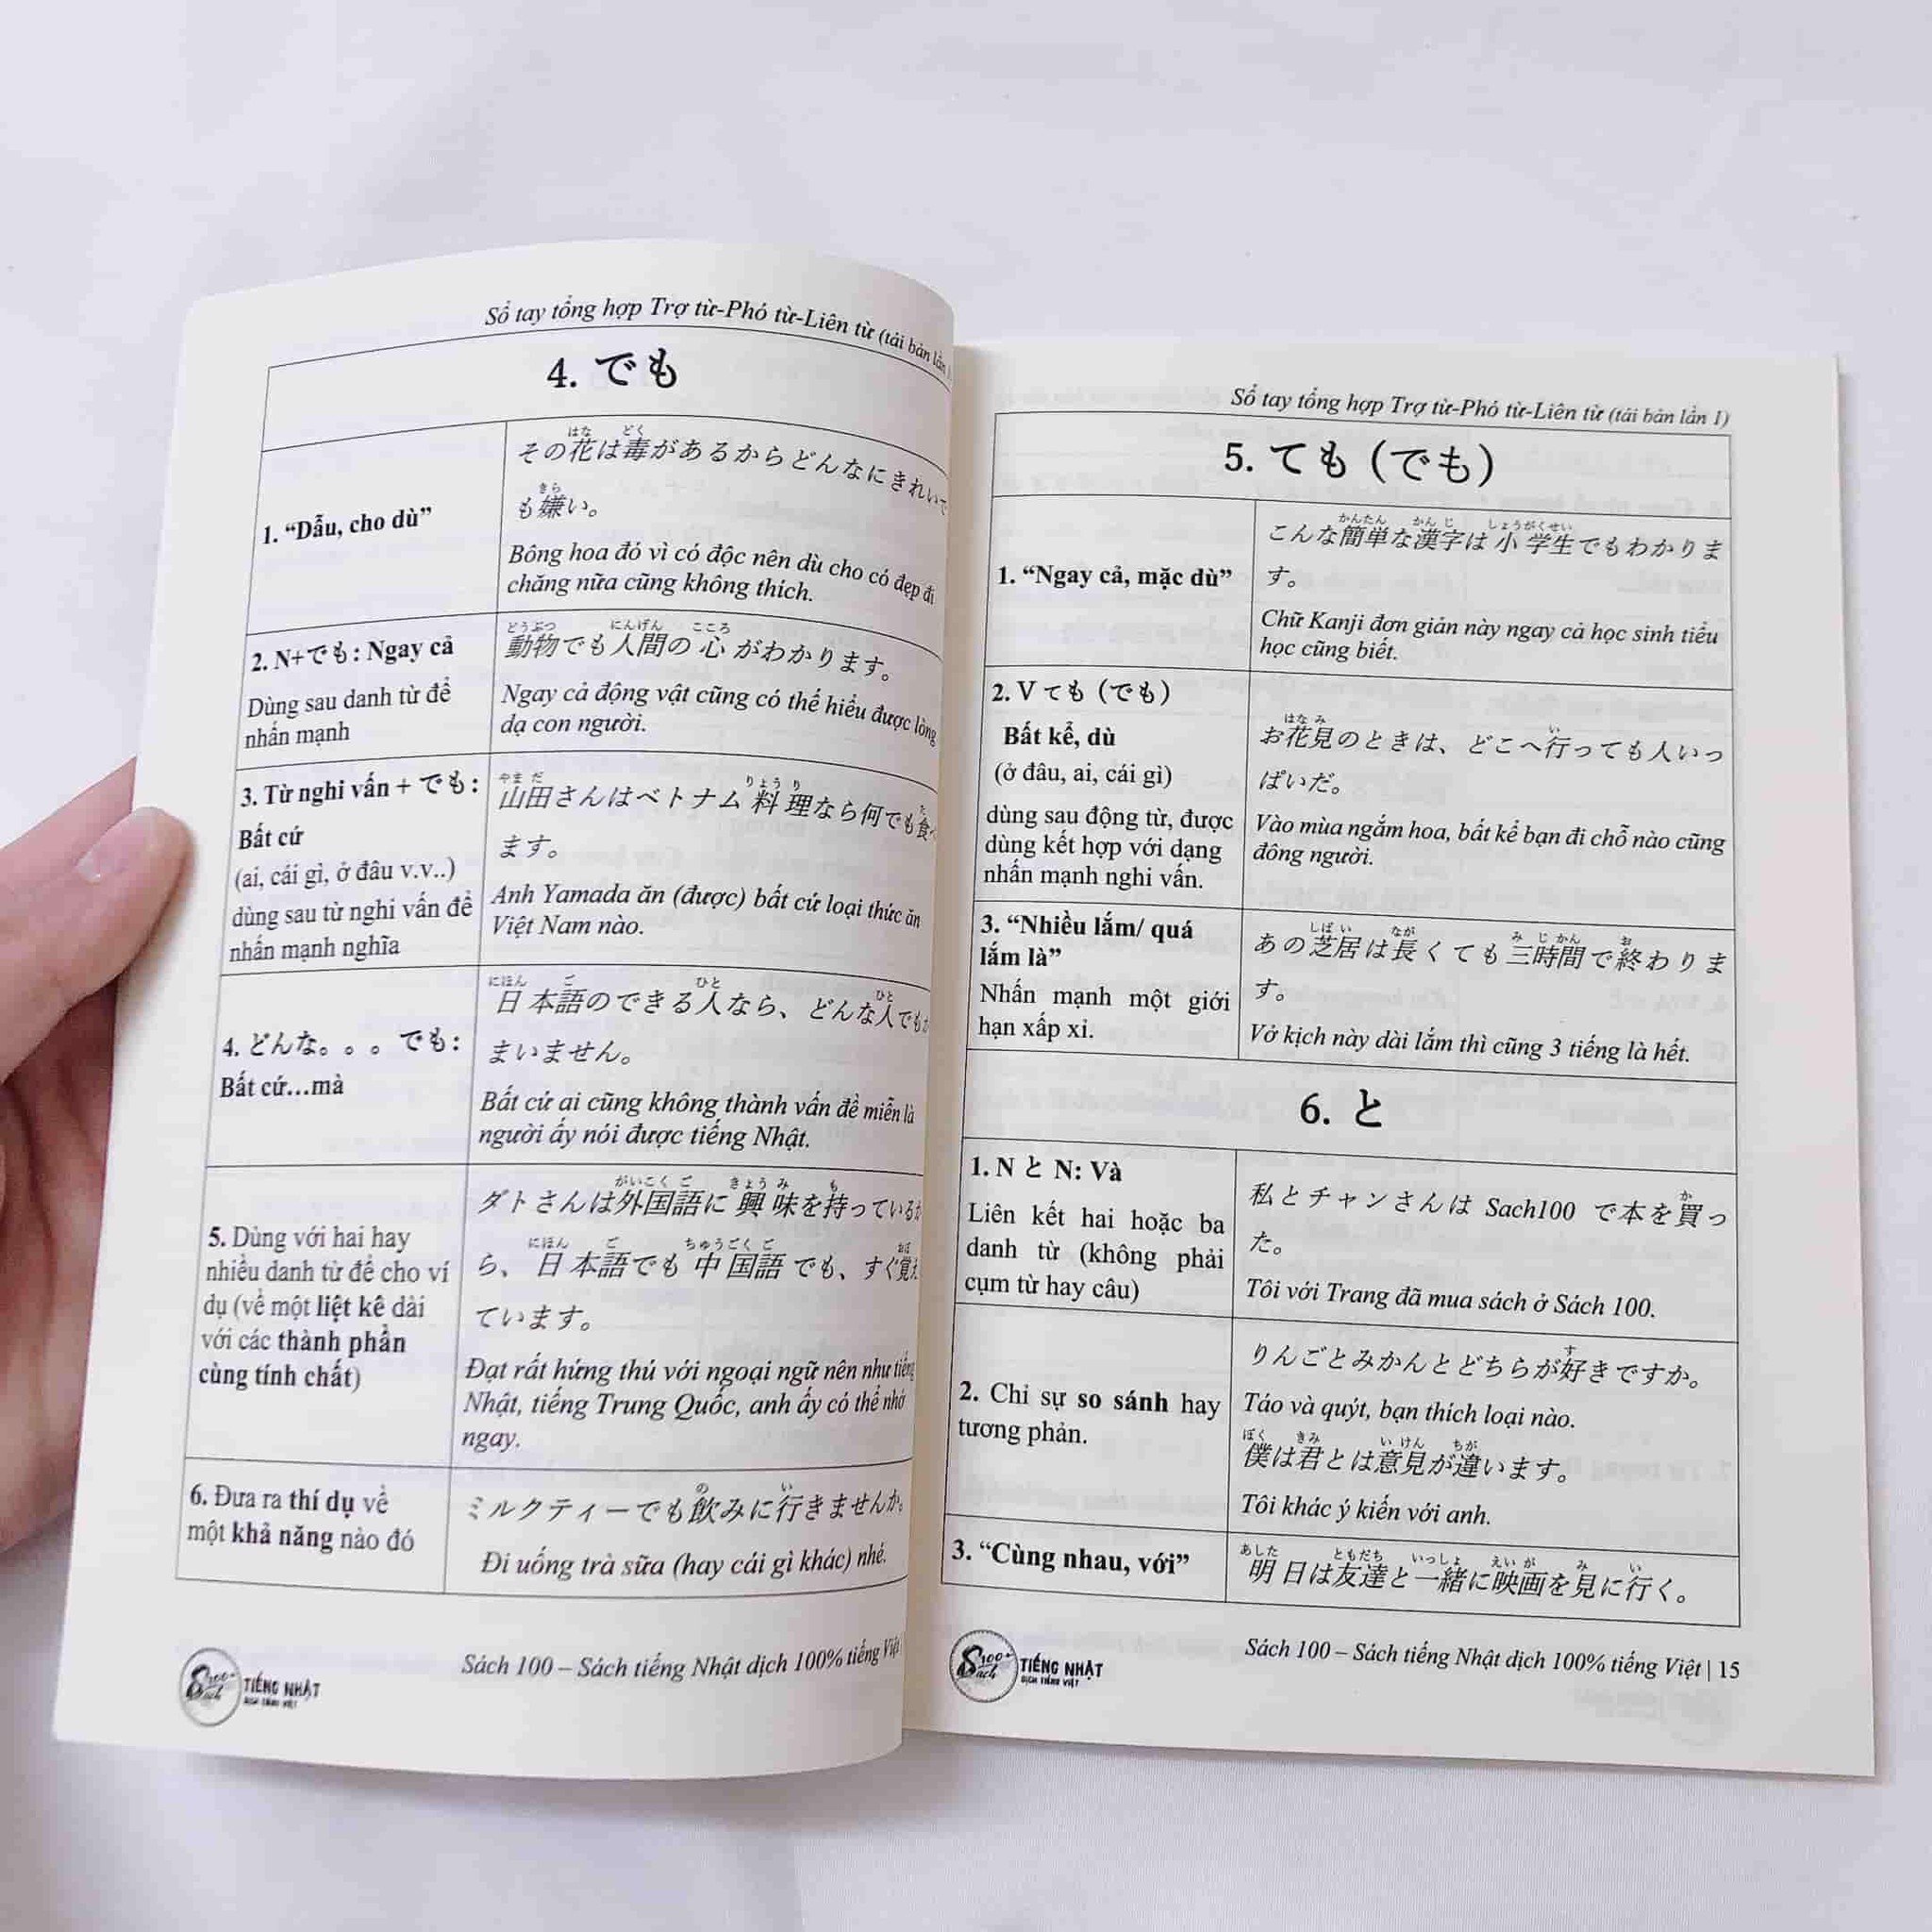 Sổ tay tổng hợp Trợ từ-Phó từ-Liên từ (tái bản lần
4. でも
1. “Dẫu, cho dù”
その花は毒があるからどんなにきれいで
も嫌い。
Bông hoa đó vì có độc nên dù cho có đẹp đi
chăng nữa cũng không thích.
2. N+でも: Ngay cả
Dùng sau danh từ để
nhấn mạnh
動物でも人間の心がわかります。
Ngay cả động vật cũng có thể hiểu được lòng
dạ con người.
3. Từ nghi vấn + でも:
Bất cứ
(ai, cái gì, ở đâu v.v..)
dùng sau từ nghi vấn để
nhấn mạnh nghĩa
山田さんはベトナム料理なら何でも食べ
ます。
Anh Yamada ăn (được) bất cứ loại thức ăn
Việt Nam nào.
4. どんな。。。でも:
Bất cứ...mà
日本語のできる人なら、どんな人でもか
まいません。
Bất cứ ai cũng không thành vấn đề miễn là
người ấy nói được tiếng Nhật.
5. Dùng với hai hay
nhiều danh từ để cho ví
dụ (về một liệt kê dài
với các thành phần
cùng tính chất)
ダトさんは外国語に興味を持っているか
ら、日本語でも中国語でも、すぐ覚え
ています。
Đạt rất hứng thú với ngoại ngữ nên như tiếng
Nhật, tiếng Trung Quốc, anh ấy có thể nhớ
ngay.
6. Đưa ra thí dụ về
một khả năng nào đó
ミルクティーでも飲みに行きませんか。
Đi uống trà sữa (hay cái gì khác) nhé.
Sách 100+
TIẾNG NHẬT
DỊCH TIẾNG VIỆT
Sách 100 – Sách tiếng Nhật dịch 100% tiếng Việt |
Sổ tay tổng hợp Trợ từ-Phó từ-Liên từ (tái bản lần 1)
5. ても（でも）
1. “Ngay cả, mặc dù”
こんな簡単な漢字は小学生でもわかりま
す。
Chữ Kanji đơn giản này ngay cả học sinh tiểu
học cũng biết.
2. V ても（でも）
Bất kể, dù
(ở đâu, ai, cái gì)
dùng sau động từ, được
dùng kết hợp với dạng
nhấn mạnh nghi vấn.
お花見のときは、どこへ行っても人いっ
ぱいだ。
Vào mùa ngắm hoa, bất kể bạn đi chỗ nào cũng
đông người.
3. “Nhiều lắm/ quá
lắm là”
Nhấn mạnh một giới
hạn xấp xỉ.
あの芝居は長くても三時間で終わりま
す。
Vở kịch này dài lắm thì cũng 3 tiếng là hết.
6. と
1. N と N: Và
Liên kết hai hoặc ba
danh từ (không phải
cụm từ hay câu)
私とチャンさんは Sach100 で本を買っ
た。
Tôi với Trang đã mua sách ở Sách 100.
2. Chỉ sự so sánh hay
tương phản.
りんごとみかんとどちらが好きですか。
Táo và quýt, bạn thích loại nào.
僕は君とは意見が違います。
Tôi khác ý kiến với anh.
3. “Cùng nhau, với”
明日は友達と一緒に映画を見に行く。
Sách 100+
TIẾNG NHẬT
DỊCH TIẾNG VIỆT
Sách 100 – Sách tiếng Nhật dịch 100% tiếng Việt | 15